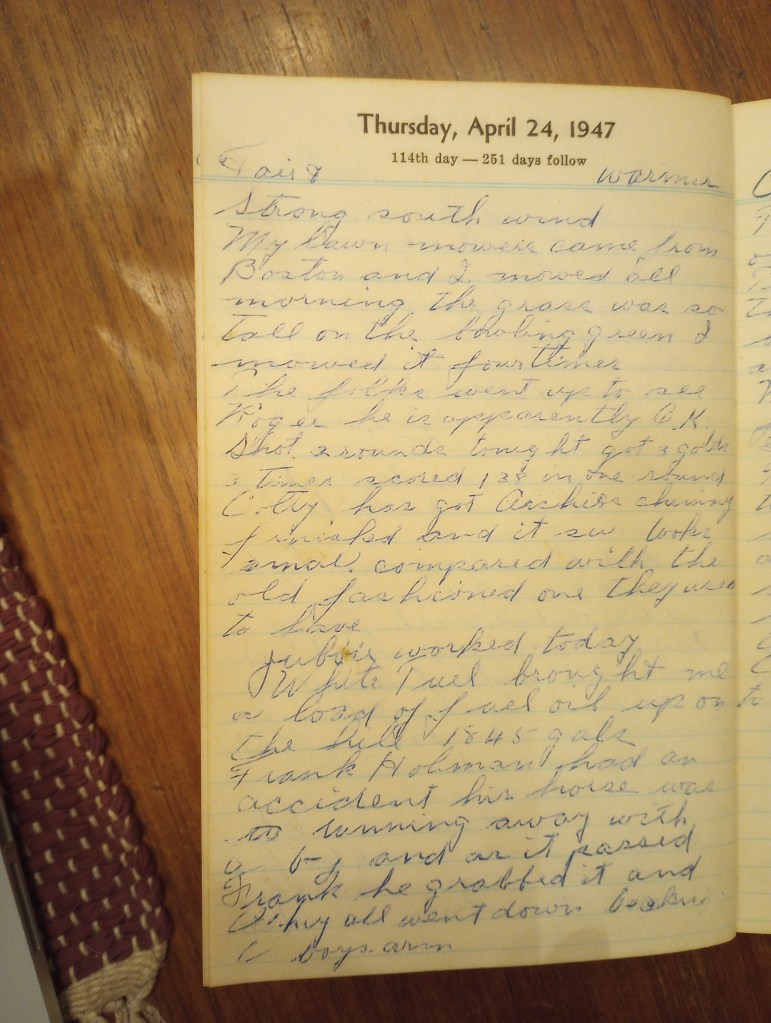 Thursday, April 24, 1947
114th day — 251 days follow
Fair & warmer
Strong south wind
My lawn mowers came from
Boston and I mowed all
morning the grass was so
tall on the bowling green I
mowed it four times
The folks went up to see
Roger he is apparently O.K.
Shot 2 rounds tonight got 3 golds
3 times scored 138 in one round
Colty has got Archies chimny
finished and it looks
small compared with the
old fashioned one they used
to have
Jubois worked today
White Fuel brought me
a load of fuel oil up on
the hill 1845 gals
Frank Holman had an
accident his horse was
running away with
a boy and as it passed
Frank he grabbed it and
They all went down
boys arm